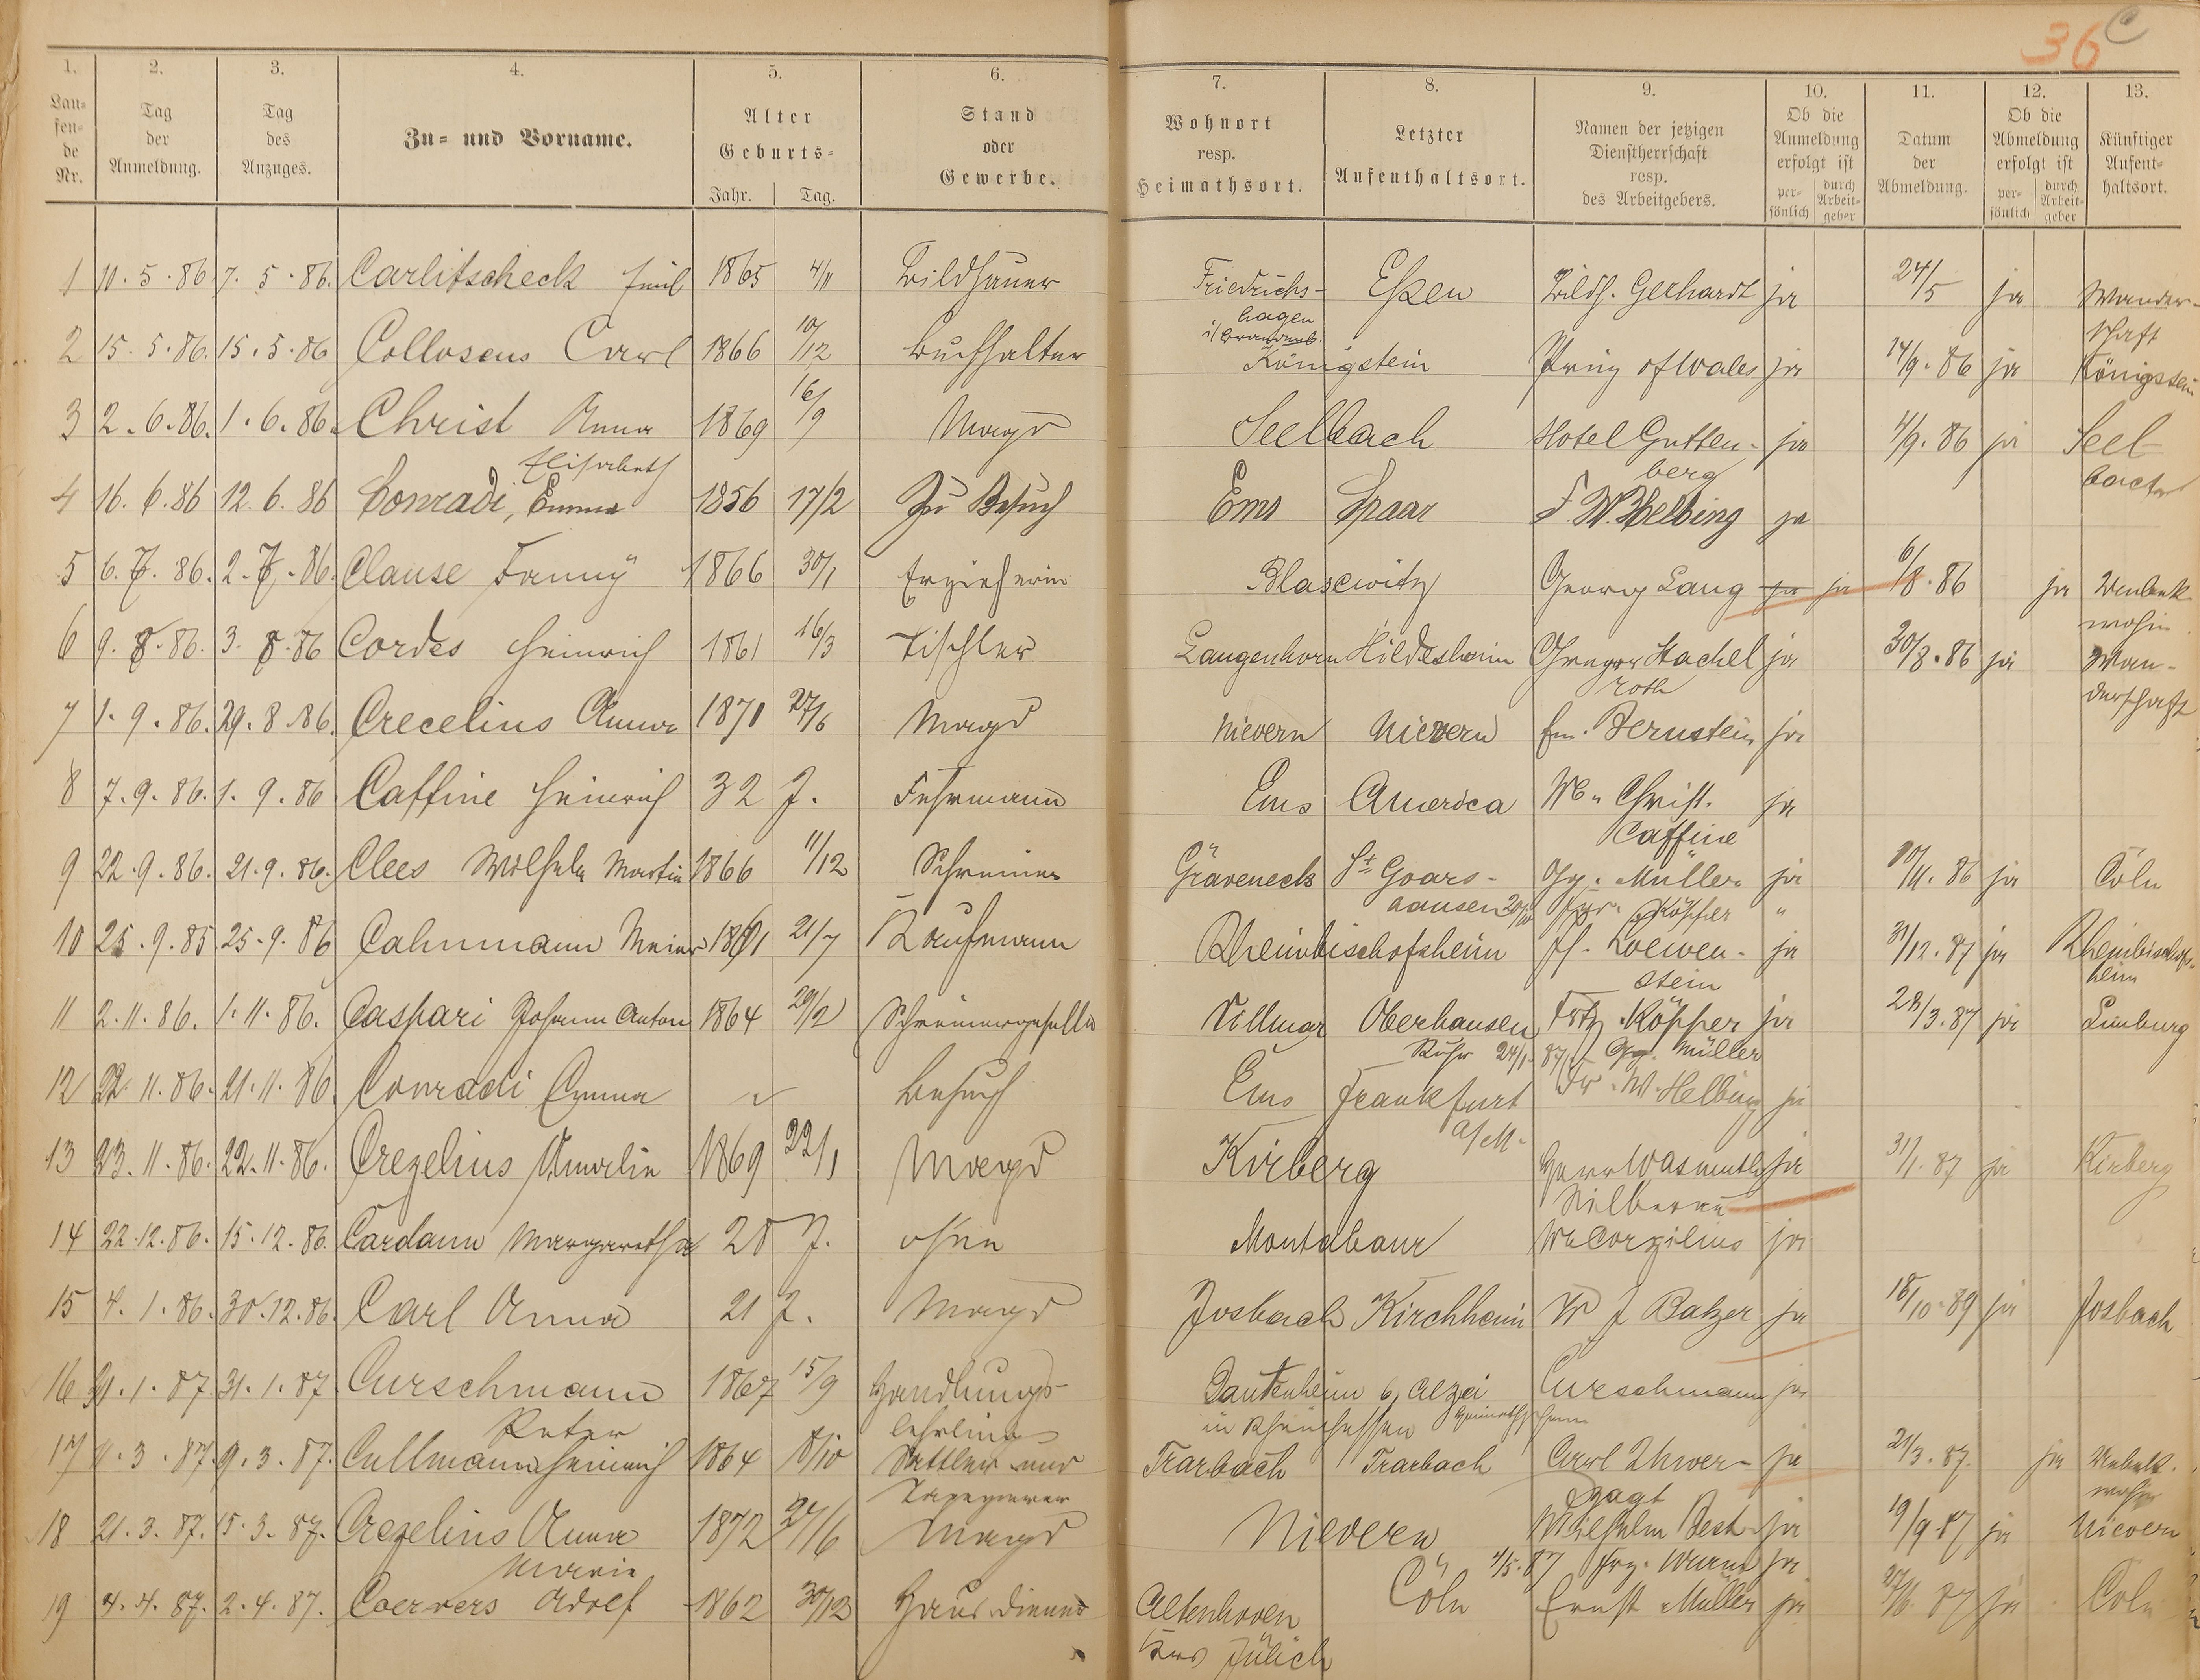 36 C
1. 2. 3. 4. 5. 6. 7. 8. 9. 10. 11. 12. 13.
Lau-
fen-
de
Nr.
Tag
der
Anmeldung.
Tag
des
Anzuges.
Zu- und Vorname.
Alter
Geburts-
Jahr. Tag.
Stand
oder
Gewerbe.
Wohnort
resp.
Heimathsort.
Letzter
Aufenthaltsort.
Namen der jetzigen
Dienstherrschaft
resp.
des Arbeitgebers.
Ob die
Anmeldung
erfolgt ist
per-
sönlich
durch
Arbeit-
geber
Datum
der
Abmeldung.
Ob die
Abmeldung
erfolgt ist
per-
sönlich
durch
Arbeit-
geber
Künftiger
Aufent-
haltsort.
1 11.5.86 7.5.86. Carlitscheck Emil 1865 4/11 Bildhauer Friedrichs- Eßen Bildh. Gerhardt ja 24/5 ja Wander-
hagen schaft
2 15.5.86. 15.5.86 Colloseus Carl 1866 10/12 Buchhalter Königstein Prinz of Wales ja 14/9.86 ja Königstein
3 2.6.86. 1.6.86. Christ Anna 1869 16/9 Magd Seelbach Hotel Gutten- ja 4/9.86 ja Seel-
Elisabeth berg bach
4 16.6.86 12.6.86 Conradi, Emma 1856 17/2 Zu Besuch Ems F. W. Helbing ja
5 6.7.86. 2.7.86. Clause Fanny 1866 30/1 Erzieherin Blasewitz Georg Lang ja ja 6/8.86 ja Unbek.
wohin
6 9.8.86. 3.8.86 Cordes Heinrich 1861 16/3 Tischler Langenhorn Hildesheim Gregor Hachel ja 30/8.86 ja Wan-
roth derschaft
7 1.9.86. 29.8.86. Crecelius Anna 1871 27/6 Magd Nievern Nievern Em. Bernstein ja
8 7.9.86. 1.9.86 Caffine Heinrich 32 J. Fuhrmann Ems America Wb. Christ. ja
Caffine
9 22.9.86. 21.9.86. Clees Wilhelm Martin 1866 11/12 Schreiner Gräveneck St Goars- Gg. Müller ja 10/11.86 ja Cöln
hausen Köpper "
10 25.9.85 25.9.86 Cahnmann Meier 1861 21/7 Kaufmann Rheinbischofsheim Loewen- ja 31/12.87 ja Rheinbischofs-
stein heim
11 2.11.86. 1.11.86. Caspari Johann Anton 1864 29/2 Schreinergeselle Villmar Oberhausen Fritz Köpper ja 28/3.87 ja Limburg
Ruhr 24/1 87 Gg. Müller
12 22.11.86. 21.11.86 Conradi Emma Besuch Ems Frankfurt Fr. W. Helbing ja
a/M.
13 23.11.86. 22.11.86. Crezelius Amalie 1869 22/1 Magd Kirberg Herr Wasmuth ja 31/1.87 ja Kirberg
14 22.12.86. 15.12.86. Cardann Margaretha 28 J. ohne Montabaur Wb Corzilius ja
15 4.1.86. 30.12.86. Carl Anna 21 J. Magd Josbach Kirchhain W J Balzer ja 18/10.89 ja Josbach
16 31.1.87. 31.1.87 Curschmann 1867 15/9 Handlungs- Dautenheim b. Alzei Curschmann ja
lehrling in Rheinhessen
Peter
17 11.3.87. 9.3.87. Cullmann Heinrich 1864 8/10 Sattler und Trarbach Trarbach Carl Zhwer- ja 21/3.87. ja Unbek.
Tapezierer zagt wohin
18 21.3.87. 15.3.87. Crezelius Anna 1872 27/6 Magd Nievern Wilhelm Best ja 19/9 87 ja Nievern
Marie 4/5.87 ja
19 4.4.87. 2.4.87. Coervers Adolf 1862 30/12 Hausdiener Altenhoven Cöln Ernst Müller ja 87 ja Coln
Krs Jülich